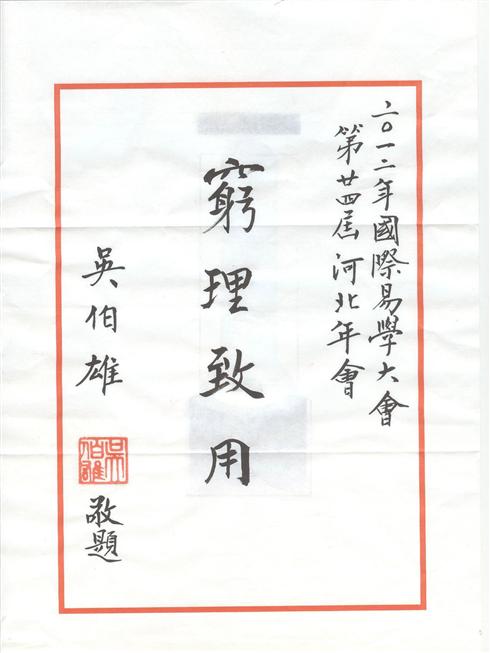 二〇一二年國際易學大會
第廿四届河北年會
窮理致用
吳伯雄
吳伯雄
敬題